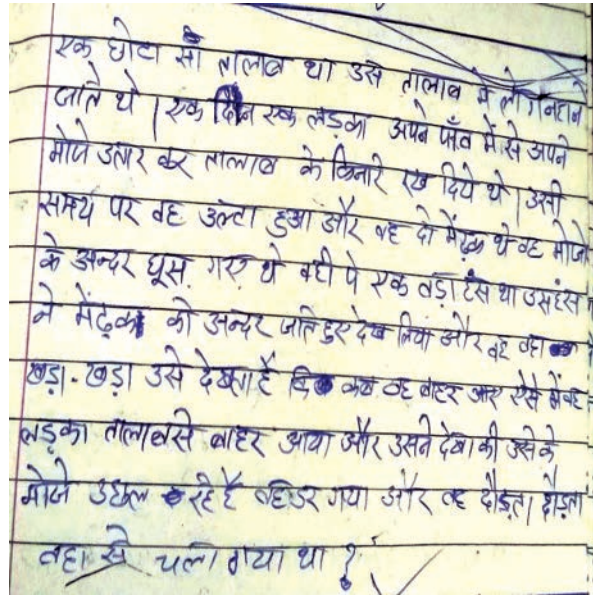 एक छोटा सा तालाब था उस तालाब में लोग नहाने
जाते थे | एक दिन एक लड़का अपने पाँव में से अपने
मोजे उतार कर तालाब के किनारे रख दिये थे | उसी
समय पर वह उल्टा हुआ और वह दो मेंढ़क थे वह मोजो
के अन्दर घूस गए थे वही पे एक बड़ा हंस था उस हंस
ने मेंढ़क को अन्दर जाते हुए देख लिया और वह वहा
खड़ा - खड़ा उसे देखता है कि कब वह बाहर आए ऐसे में वह
लड़का तालाब से बाहर आया और उसने देखा की उसे के
मोजे उछल रहे है वह डर गया और वह दौड़ता दौड़ता
वहा से चला गया था ?